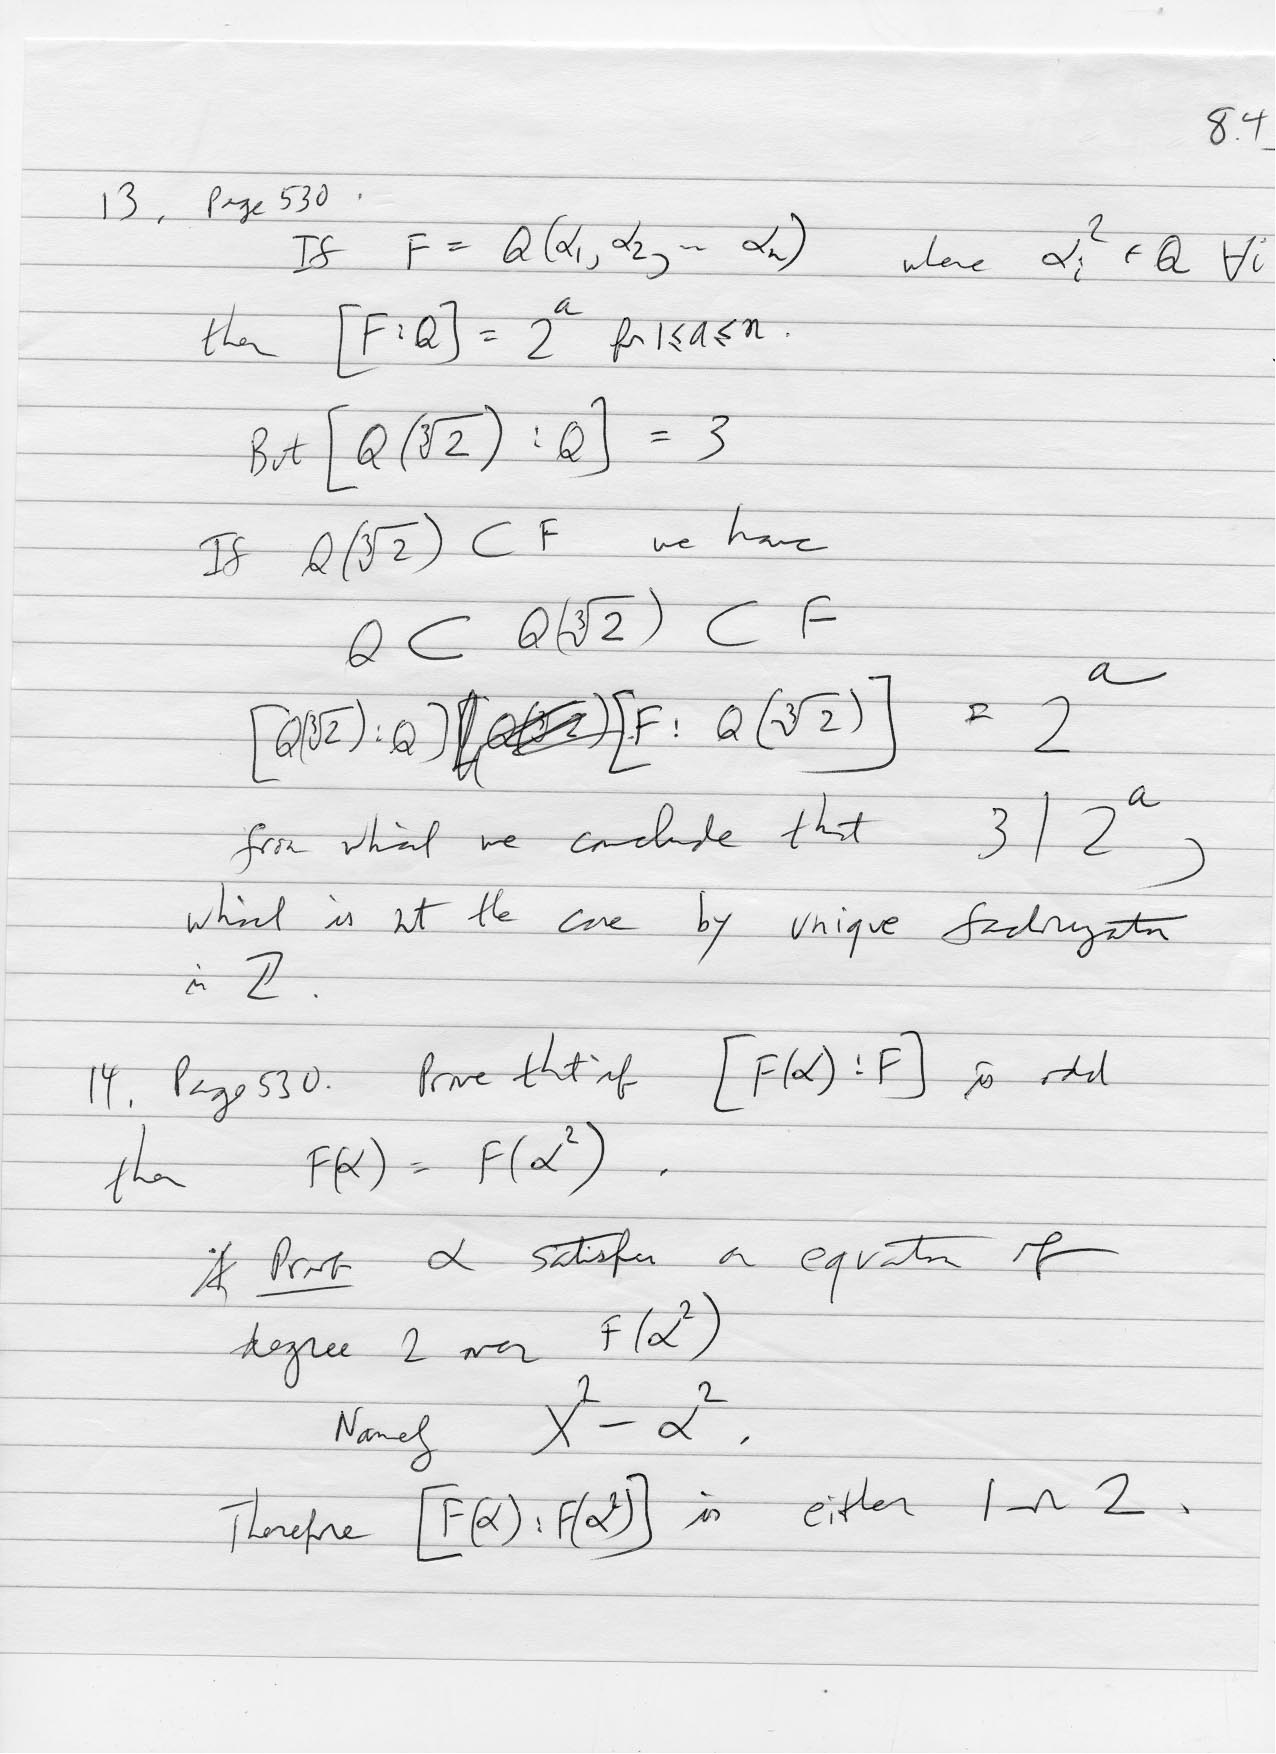 8.4
13. Page 530.
If F = Q(α₁, α₂, ~ αₙ) where αᵢ² ∈ Q ∀i
then [F:Q] = 2ᵃ for 1≤a≤n.
But [Q(∛2) : Q] = 3
If Q(∛2) ⊂ F we have
Q ⊂ Q(∛2) ⊂ F
[Q(∛2):Q] [F: Q(∛2)] = 2ᵃ
from which we conclude that 3 | 2ᵃ,
which is not the case by unique factorization
in ℤ.
14. Page 530. Prove that if [F(α) : F] is odd
then F(α) = F(α²).
Proof α satisfies an equation of
degree 2 over F(α²)
Namely X² - α².
Therefore [F(α) : F(α²)] is either 1 or 2.